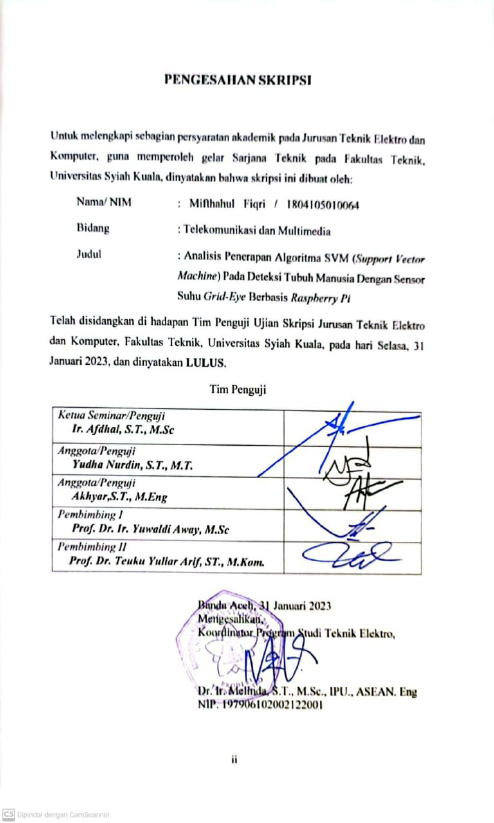 PENGESAHAN SKRIPSI
Untuk melengkapi sebagian persyaratan akademik pada Jurusan Teknik Elektro dan
Komputer, guna memperoleh gelar Sarjana Teknik pada Fakultas Teknik,
Universitas Syiah Kuala, dinyatakan bahwa skripsi ini dibuat oleh:
Nama/ NIM : Mifthahul Fiqri / 1804105010064
Bidang : Telekomunikasi dan Multimedia
Judul : Analisis Penerapan Algoritma SVM (Support Vector
Machine) Pada Deteksi Tubuh Manusia Dengan Sensor
Suhu Grid-Eye Berbasis Raspberry Pi
Telah disidangkan di hadapan Tim Penguji Ujian Skripsi Jurusan Teknik Elektro
dan Komputer, Fakultas Teknik, Universitas Syiah Kuala, pada hari Selasa, 31
Januari 2023, dan dinyatakan LULUS.
Tim Penguji
Ketua Seminar/Penguji
Ir. Afdhal, S.T., M.Sc
Anggota/Penguji
Yudha Nurdin, S.T., M.T.
Anggota/Penguji
Akhyar,S.T., M.Eng
Pembimbing I
Prof. Dr. Ir. Yuwaldi Away, M.Sc
Pembimbing II
Prof. Dr. Teuku Yuliar Arif, ST., M.Kom.
Banda Aceh, 31 Januari 2023
Mengesahkan,
Koordinator Program Studi Teknik Elektro,
Dr. Ir. Melinda, S.T., M.Sc., IPU., ASEAN. Eng
NIP. 197906102002122001
ii
CS Dipindai dengan CamScanner